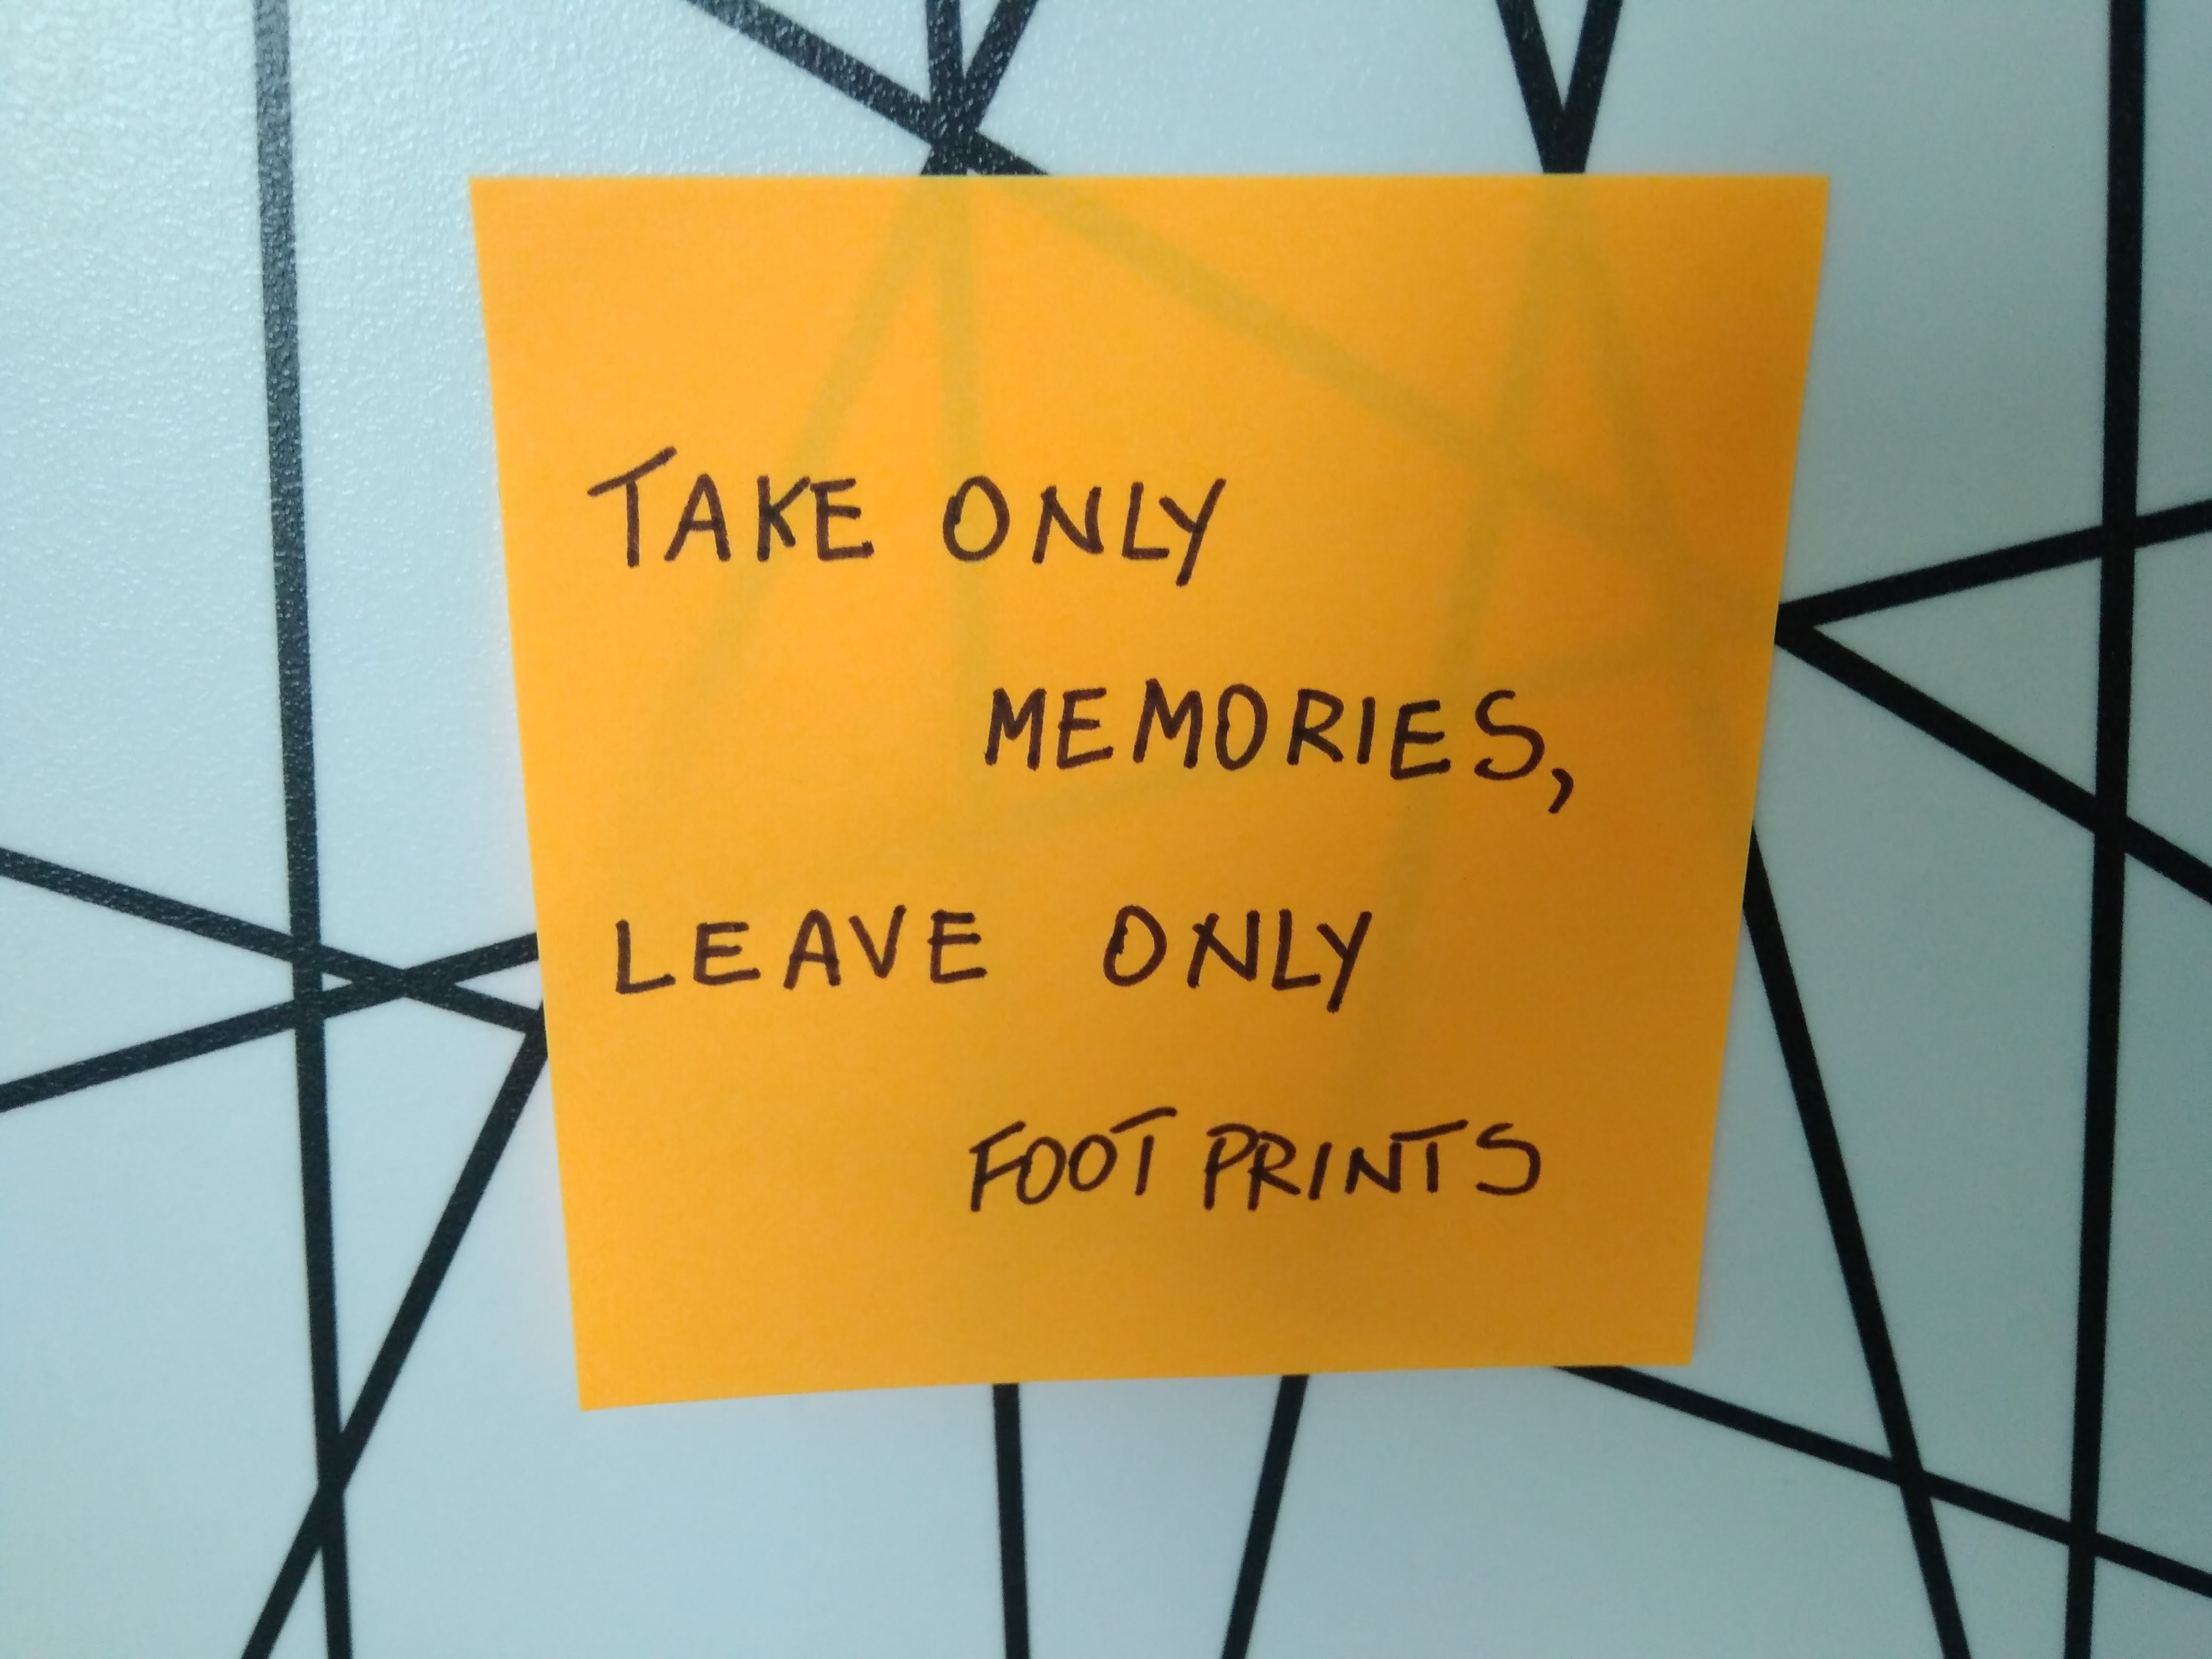 TAKE ONLY
MEMORIES,
LEAVE ONLY
FOOT PRINTS